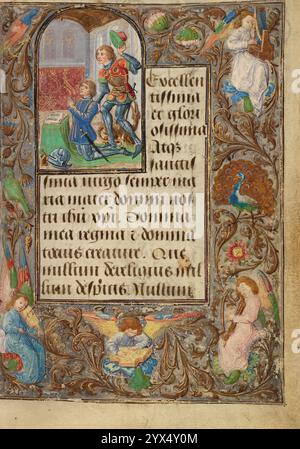 Excellen
tissima
et glori
osissima
Atqz
sanctis
sima virgo semper ma
ria mater domini nos
tri ihu xpi. Domina
mea regina et domina
tocius creature. Que
nullum derelinquis nul
lum despicis. Nullum
alamy
Image ID: 2YX4Y0M
www.alamy.com